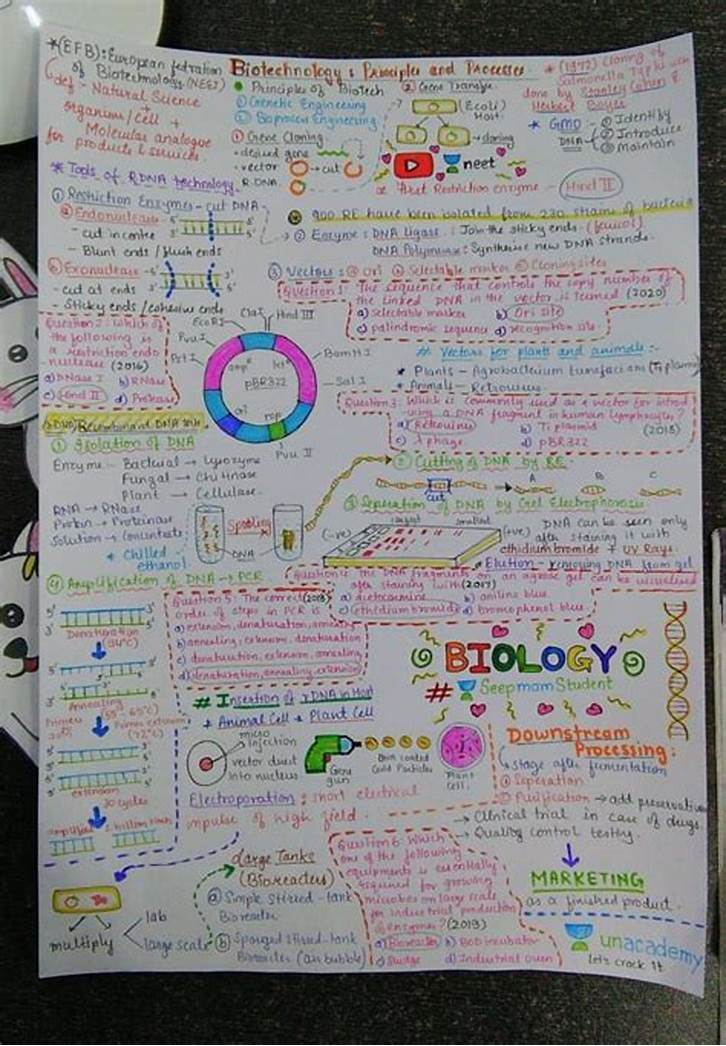 *(EFB): European fedration
of Biotechnology (NEET)
def - Natural Science
+
organism/cell +
Molecular analogue
for products & services.
Biotechnology: Principles and Processes
Principles of Biotech
① Genetic Engineering
② Bioprocess Engineering
① Gene Cloning
• desired gene
• vector → cut
R-DNA
② Gene Transfer
(E.coli)
Host
→ cloning
neet
* (1972) Cloning of
Salmonella Typhi
done by Stanley Cohen &
Herbert Boyer
* GMO - ① Identify
DNA ② Introduce
③ Maintain
First Restriction enzyme - Hind II
* Tools of RDNA technology
① Restriction Enzymes - cut DNA
ⓐ Endonuclease -
- cut in centre
- Blunt ends / flush ends
ⓑ Exonuclease
- cut at ends
- Sticky ends / cohesive ends
900 RE have been isolated from 230 strains of bacteria
② Enzyme: DNA Ligase: Join the sticky ends.
DNA Polymerase: Synthesise new DNA strands.
③ Vectors: ⓐ Ori ⓑ Selectable marker ⓒ Cloning sites
Question 1: The sequence that controls the copy number of
the linked DNA in the vector, is termed (2020)
a) selectable marker b) Ori site
c) palindromic sequence d) recognition site
Question 2: Which of
the following is
a restriction endo
nuclease (2016)
a) DNase I b) RNase
c) Hind II d) Protease
ClaI
Hind III
EcoRI
PvuI
PstI
BamHI
Sal I
Pvu II
ampR
tetR
pBR322
ori
rop
# Vectors for plants and animals:-
* Plants - Agrobacterium tumefaciens (Ti plasmid)
* Animals - Retrovirus
Question 3: Which is commonly used as a vector for introd
-ucing a DNA fragment in human lymphocytes?
(2018)
a) Retrovirus b) Ti plasmid
c) λ phage d) pBR322
Recombinant DNA
① Isolation of DNA
Enzyme - Bacterial → Lysozyme
Fungal → Chitinase
Plant → Cellulase.
RNA → RNase
Protein → Proteinase
* Chilled
ethanol
Spooling
DNA
② Cutting of DNA by RE
cut
A
B
C
③ Separation of DNA by Gel Electrophoresis
largest
smallest
(-ve)
(+ve)
DNA can be seen only
after staining it with
ethidium bromide + UV Rays.
Elution - removing DNA from gel
Question 4: The DNA fragments on an agrose gel can be visualised
after staining with (2017)
b) aniline blue
c) ethidium bromide d) bromophenol blue
④ Amplification of DNA → PCR
5' 3'
3' 5'
Denaturation
(94°C)
Annealing
extension
30 cycles
amplified
1 billion times
Question 5: The correct (2018)
order of steps in PCR is
a) extension, denaturation, annealing
b) annealing, extension, denaturation
c) denaturation, extension, annealing
d) denaturation, annealing, extension
BIOLOGY
# SeepmomStudent
# Insertion of rDNA in Host
* Animal Cell * Plant Cell
micro
injection
vector direct
into nucleus
Gene
gun
DNA coated
Gold Particles
Plant
Cell.
Electroporation: short electrical
impulse of high field.
Downstream
Processing:
stage after fermentation
① Seperation
② Purification → add preservative
→ Clinical trial in case of drugs.
→ Quality control testing.
MARKETING
as a finished product.
multiply
lab
large scale
Large Tanks
(Bioreactors)
ⓐ Simple Stirred-tank
Bioreactor
ⓑ Sparged stirred-tank
Bioreactor (air bubble)
Question 6: Which
one of the following
equipments is essentially
required for growing
microbes on large scale
for industrial production
of enzymes? (2019)
a) Bioreactor b) BOD incubator
c) Sludge d) Industrial oven
unacademy
Let's crack it